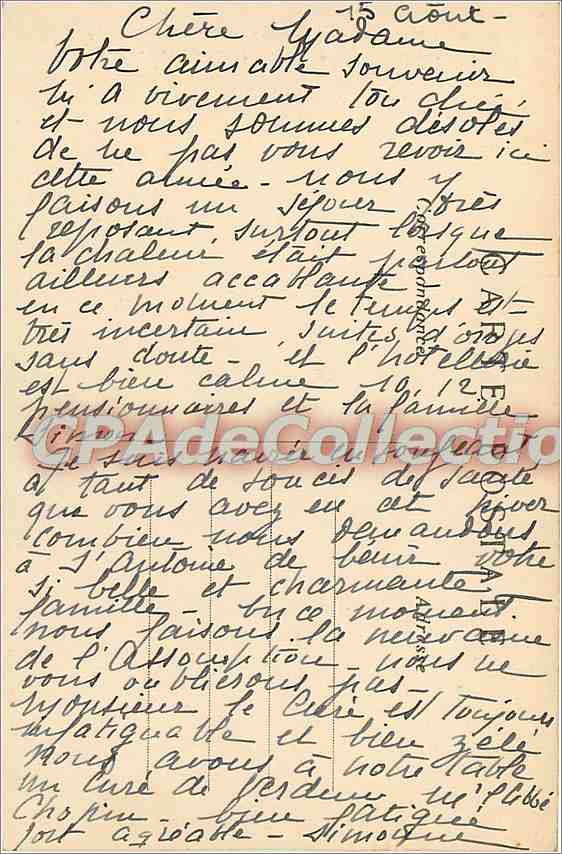 15 Août -
Chère Madame
Votre aimable souvenir
m'a vivement touchée,
et nous sommes désolés
de ne pas vous revoir ici
cette année - nous y
faisons un séjour très
reposant, surtout lorsque
la chaleur était partout
ailleurs accablante
en ce moment le temps est
très incertain, suites d'orages
sans doute - et l'hôtellerie
est bien calme 10, 12
pensionnaires et la famille
Simon
Je suis navrée en songeant
à tant de soucis de santé
que vous avez eu cet hiver
combien nous demandons
à St Antoine de bénir votre
si belle et charmante
famille - En ce moment
nous faisons la neuvaine
de l'Assomption - nous ne
vous oublierons pas -
Monsieur le Curé est toujours
infatiguable et bien zélé
nous avons à notre table
un Curé de Verdun M. l'Abbé
Chopin - bien fatigué
fort agréable - Simonne
CARTE POSTALE
Correspondance
Adresse
CPAdeCollection